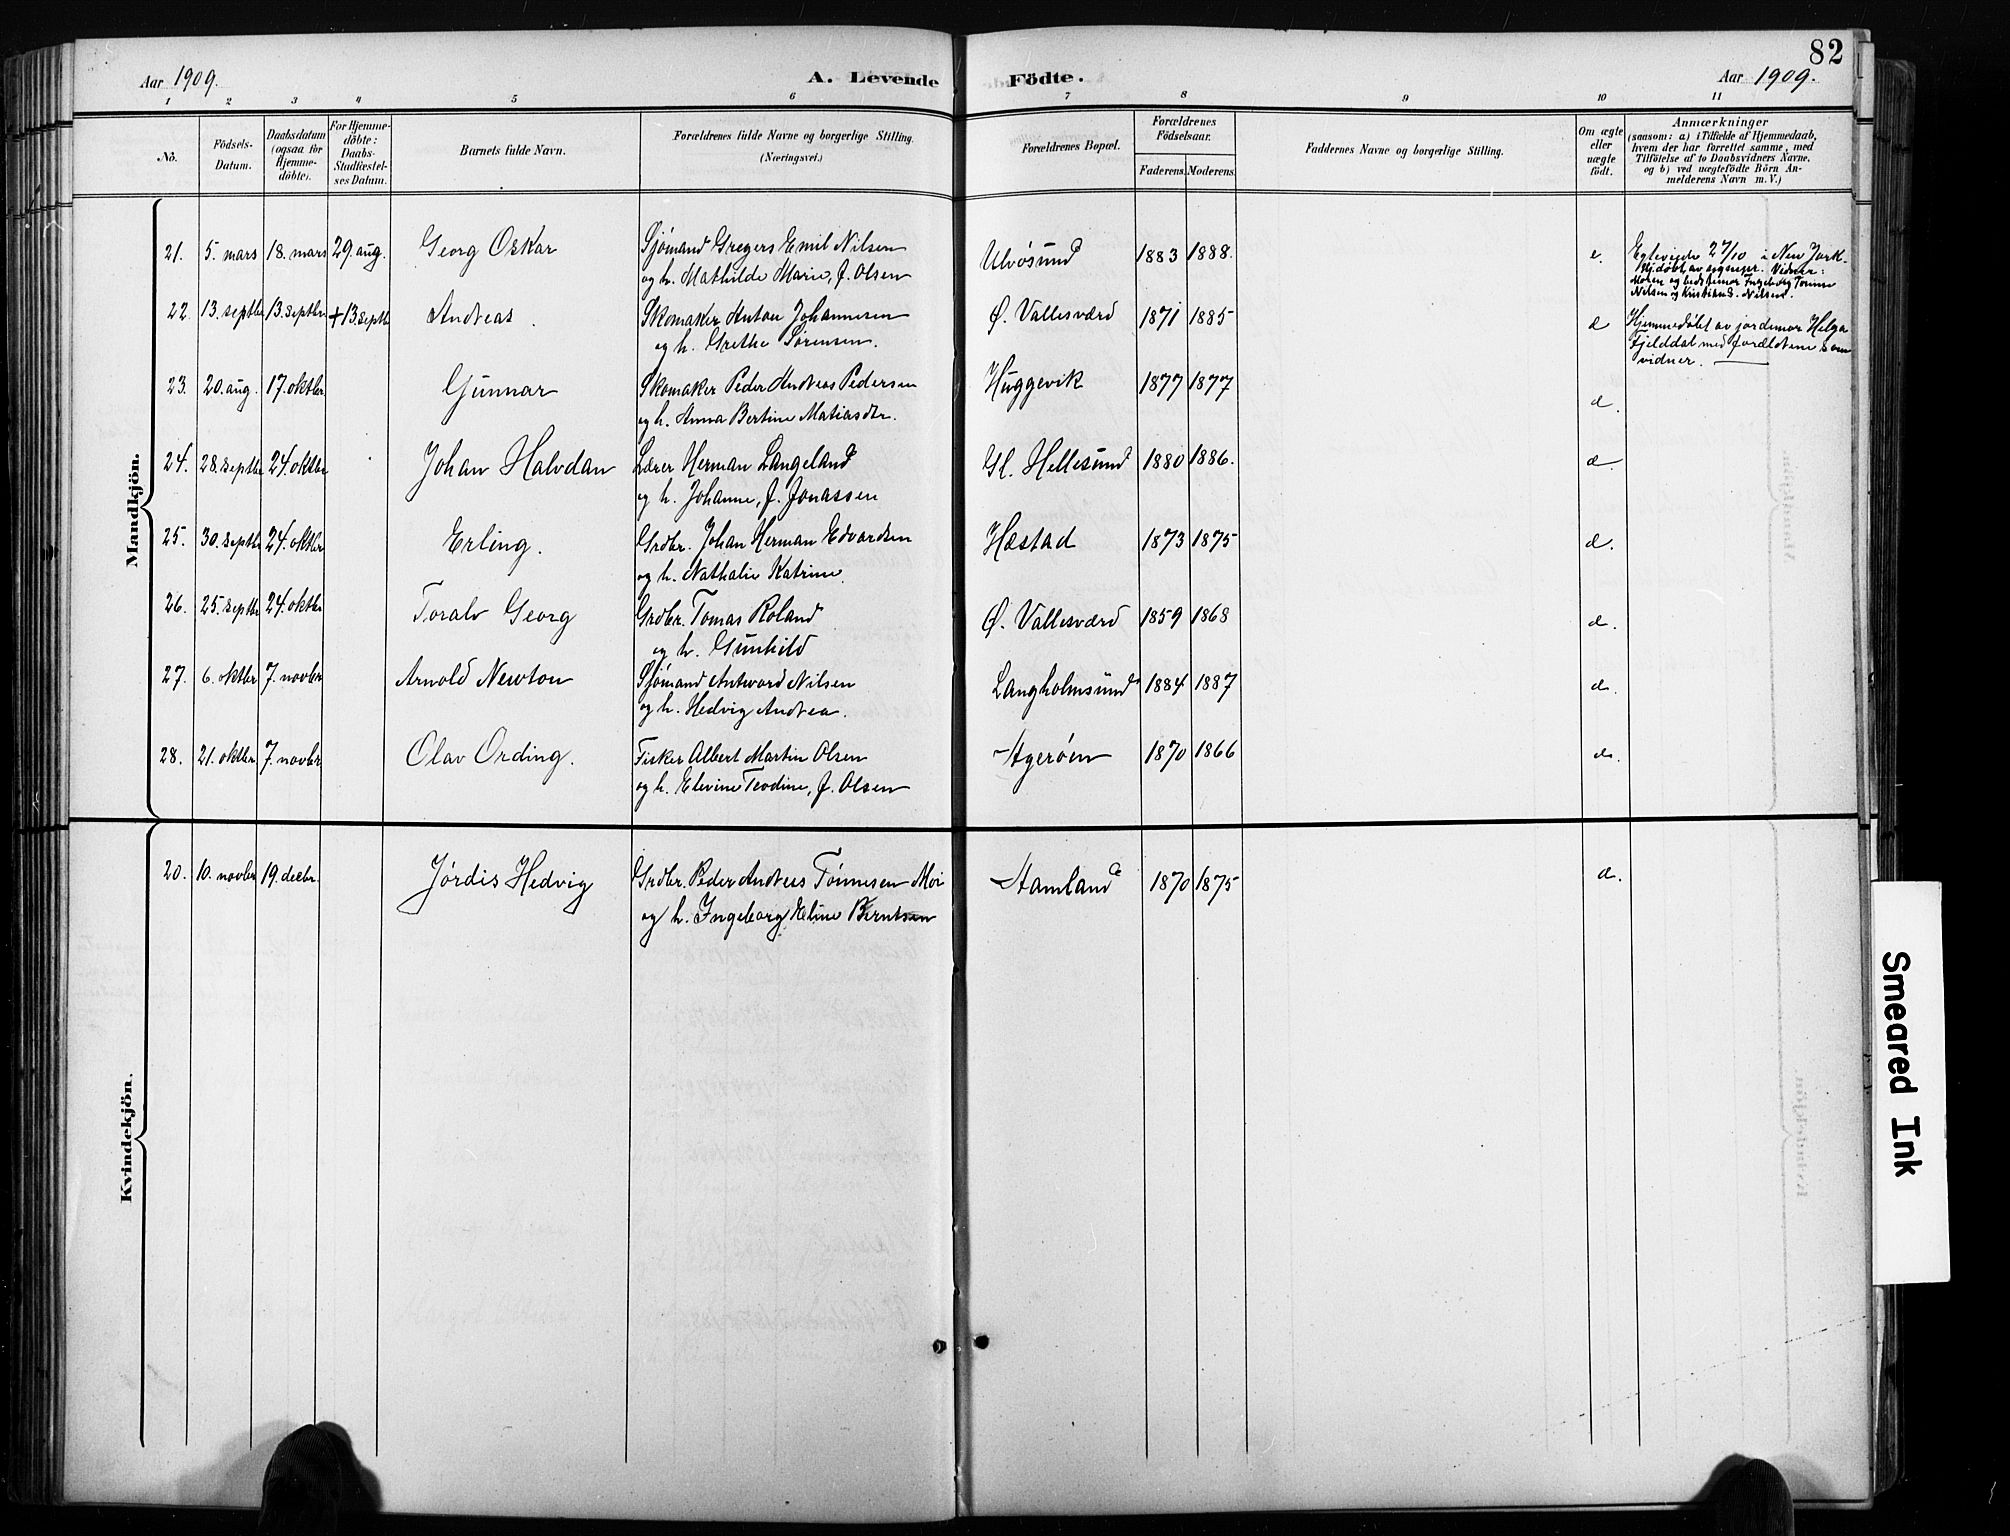 82
Aar 1909. A. Levende Födte. Aar 1909.
1 2 3 4 5 6 7 8 9 10 11
No. Födsels-Datum. Daabsdatum (ogsaa for Hjemme-döbte). For Hjemme-döbte: Daabs-Stadfæstel-ses Datum. Barnets fulde Navn. Forældrenes fulde Navne og borgerlige Stilling. (Næringsvei.) Forældrenes Bopæl. Forældrenes Födselsaar. Faderens. Moderens. Faddernes Navne og borgerlige Stilling. Om ægte eller uægte födt. Anmærkninger (saasom: a) i Tilfælde af Hjemmedaab, hvem der har forrettet samme, med Tilföielse af to Daabsvidners Navne, og b) ved uægtefödte Börn An-melderens Navn m. V.)
Mandkjön.
21. 5. mars 18. mars 29. aug. Georg Oskar Sjömand Gregers Emil Nilsen Ulvøsund 1883 1888. e. 27/10 i New Jork.
og h. Mathilde Marie, f. Olsen Hjdøbt av Vidner:
Moren og bedstemor Ingeborg Tomine
Nilsen og Kristians. Nilsen.
22 13. septbr 13. septbr +13. septbr Andreas. Skomaker Anton Johannesen Ø. Vallesværd 1871 1885 d Hjemmedøbt av jordemor Helga
og h. Grethe Sørensen. Fjelddal med forældrene som
vidner.
23. 20. aug. 17. oktbr Gunnar Skomaker Peder Andreas Pedersen Huggevik 1877 1877 d.
og h. Anna Bertine Matiasdtr.
24. 28. septbr 24. oktbr Johan Halvdan Lærer Herman Langeland Gl. Hellesund 1880 1886. d.
og h. Johanne, f. Jonassen
25. 30. septbr 24. oktbr Erling. Grdbr. Johan Herman Edvardsen Hæstad 1873 1875 d.
og h. Nathalie Katrine.
26. 25. septbr 24. oktbr Toralv Georg Grdbr. Tomas Roland Ø. Vallesværd 1859 1868 d.
og h. Gunhild
27. 6. oktbr 7. novbr Arnold Newton Sjömand Antword Nilsen Langholmsund 1884 1887 d.
og h. Hedvig Andrea.
28. 21. oktbr 7. novbr Olav Ording. Fisker Albert Martin Olsen Agerøen 1870 1866 d.
og h. Elevine Teodine, f. Olsen
Kvindekjön.
20. 10. novbr 19. decbr. Jørdis Hedvig Grdbr. Peder Andreas Tønnesen Moi Hamland 1870 1875 d.
og h. Ingeborg Eline Berntsen
Smeared Ink